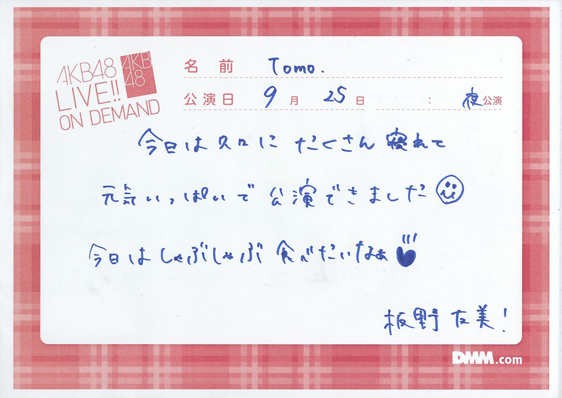 AKB48
LIVE!!
ON DEMAND
AKB
48
名前 Tomo.
公演日 9月 25日 : 夜公演
今日は久々に たくさん 寝れて
元気いっぱいで 公演できました
今日はしゃぶしゃぶ 食べたいなぁ
板野友美!
DMM.com